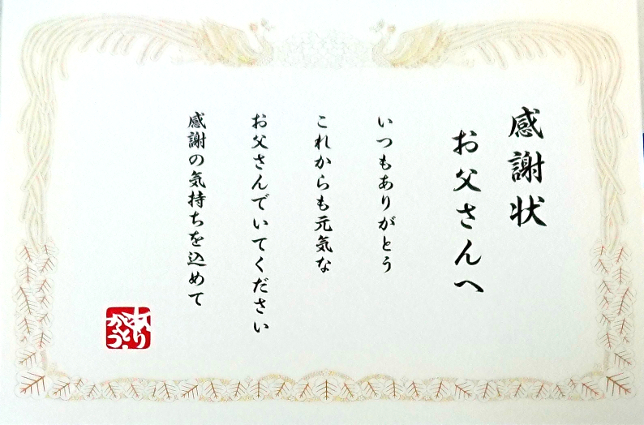 感謝状
お父さんへ
いつもありがとう
これからも元気な
お父さんでいてください
感謝の気持ちを込めて
ありがとう